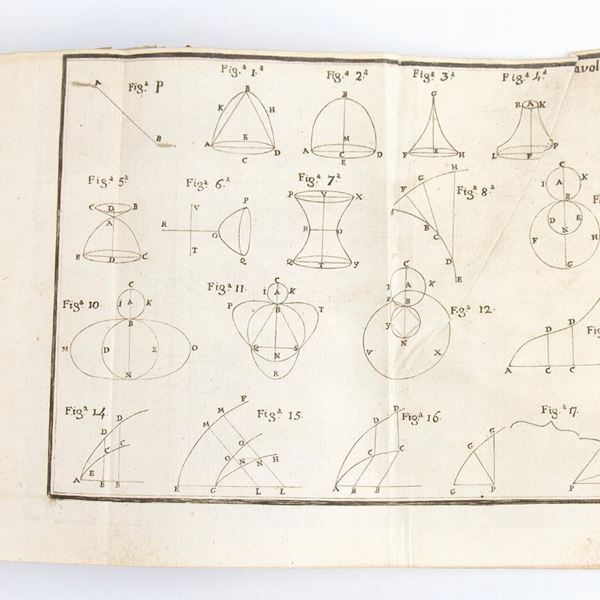 avol
Fig.ª P
Fig.ª 1.ª
Fig.ª 2.ª
Fig.ª 3.ª
Fig.ª 4.ª
A
B
B
K
H
A
E
D
C
B
M
A
C
D
E
G
F
K
H
R A K
L
F
P
Fig.ª 5.ª
Fig.ª 6.ª
Fig.ª 7.ª
Fig.ª 8.ª
C
D
B
A
E
D
C
V
P
R
O
T
Q
P
V
X
R
O
Q
T
Y
H
G
F
B
C
D
E
C
I
A
K
B
D
E
F
N
H
G
Fig.ª 10.
Fig.ª 11.
Fig.ª 12.
C
I
A
K
B
M
D
X
O
N
C
I
A
K
P
B
T
Q
S
N
R
C
I
A
K
Z
B
Y
N
V
X
Fig
D
D
A
C
C
Fig.ª 14.
Fig.ª 15.
Fig.ª 16.
Fig.ª 17.
D
D
C
C
E
A
B
B
F
M
M
O
O
N
N
H
E
G
L
L
D
D
C
C
A
B
B
G
G
G
P
P